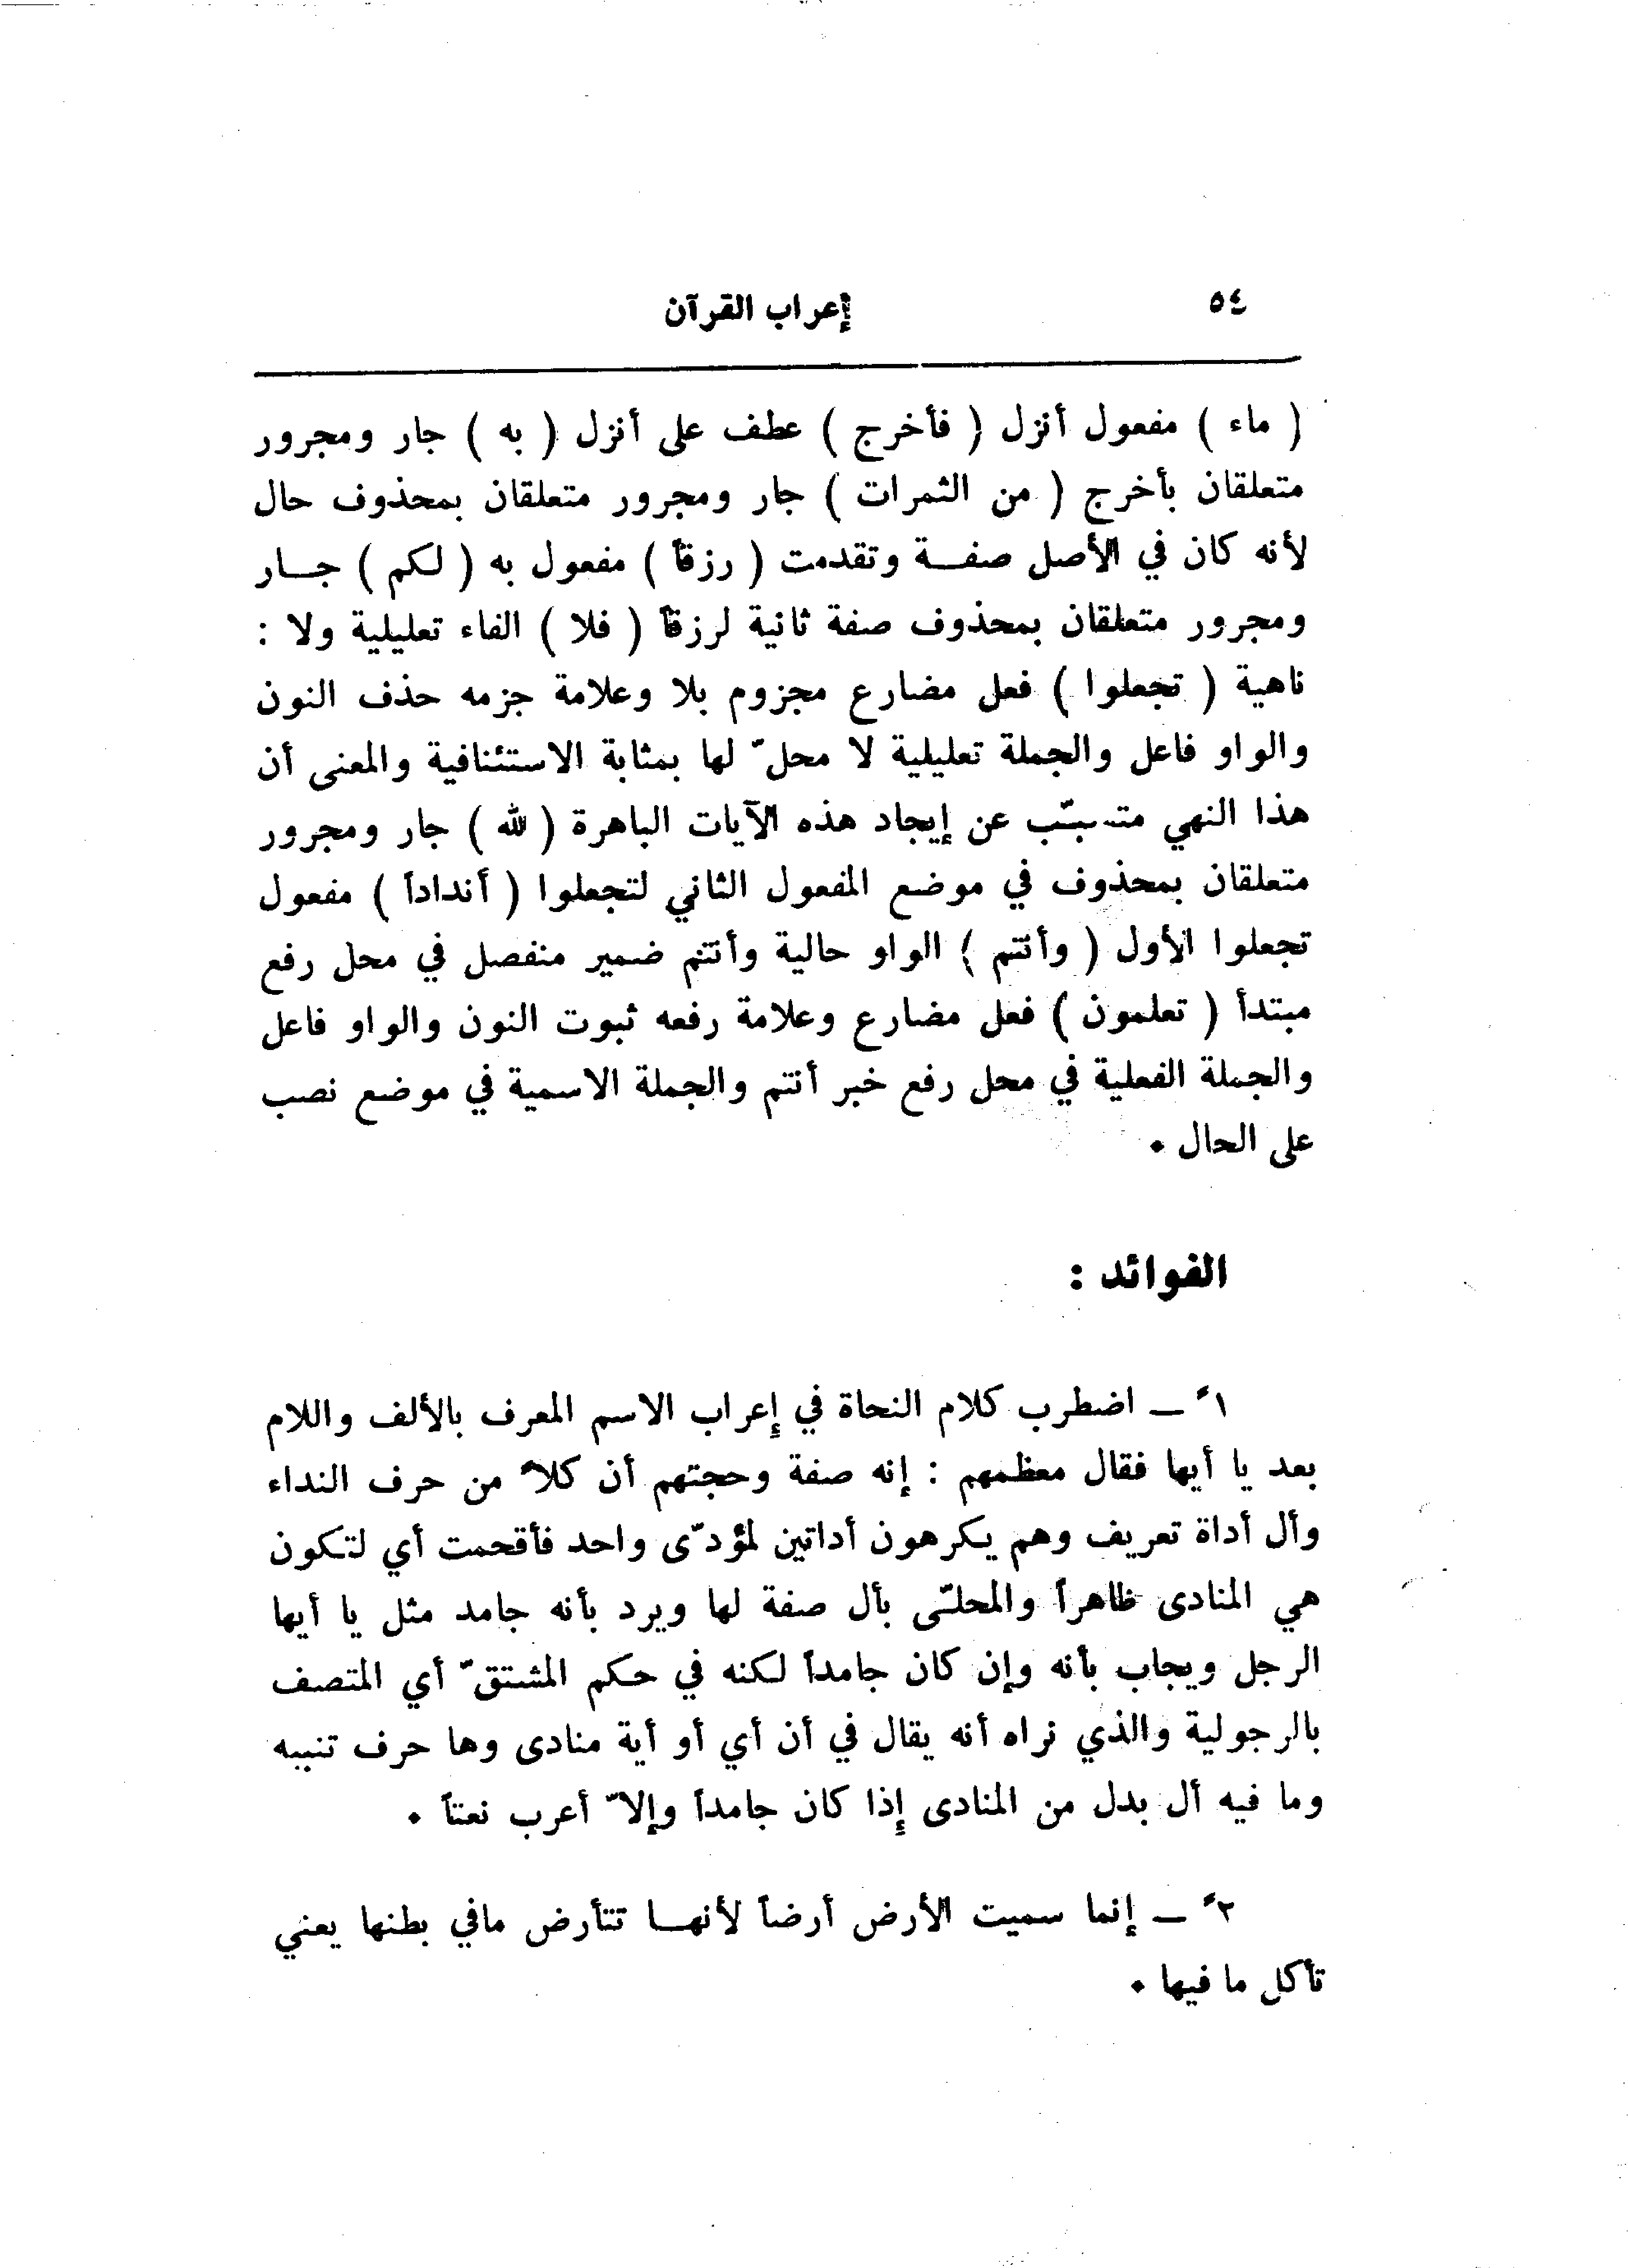 ٥٤
إعراب القرآن
( ماء ) مفعول أنزل ( فأخرج ) عطف على أنزل ( به ) جار ومجرور
متعلقان بأخرج ( من الثمرات ) جار ومجرور متعلقان بمحذوف حال
لأنه كان في الأصل صفـة وتقدمت ( رزقاً ) مفعول به ( لكم ) جـار
ومجرور متعلقان بمحذوف صفة ثانية لرزقاً ( فلا ) الفاء تعليلية ولا :
ناهية ( تجعلوا ) فعل مضارع مجزوم بلا وعلامة جزمه حذف النون
والواو فاعل والجملة تعليلية لا محلّ لها بمثابة الاستئنافية والمعنى أن
هذا النهي متسبّب عن إيجاد هذه الآيات الباهرة ( لله ) جار ومجرور
متعلقان بمحذوف في موضع المفعول الثاني لتجعلوا ( أنداداً ) مفعول
تجعلوا الأول ( وأنتم ) الواو حالية وأنتم ضمير منفصل في محل رفع
مبتدأ ( تعلمون ) فعل مضارع وعلامة رفعه ثبوت النون والواو فاعل
والجملة الفعلية في محل رفع خبر أنتم والجملة الاسمية في موضع نصب
على الحال .
الفوائد :
١ً ـ اضطرب كلام النحاة في إعراب الاسم المعرف بالألف واللام
بعد يا أيها فقال معظمهم : إنه صفة وحجتهم أن كلاً من حرف النداء
وأل أداة تعريف وهم يكرهون أداتين لمؤدّى واحد فأقحمت أي لتكون
هي المنادى ظاهراً والمحلّى بأل صفة لها ويرد بأنه جامد مثل يا أيها
الرجل ويجاب بأنه وإن كان جامداً لكنه في حكم المشتقّ أي المتصف
بالرجولية والذي نراه أنه يقال في أن أي أو أية منادى وها حرف تنبيه
وما فيه أل بدل من المنادى إذا كان جامداً وإلاّ أعرب نعتاً .
٢ً ـ إنما سميت الأرض أرضاً لأنهـا تتأرض مافي بطنها يعني
تأكل ما فيها .